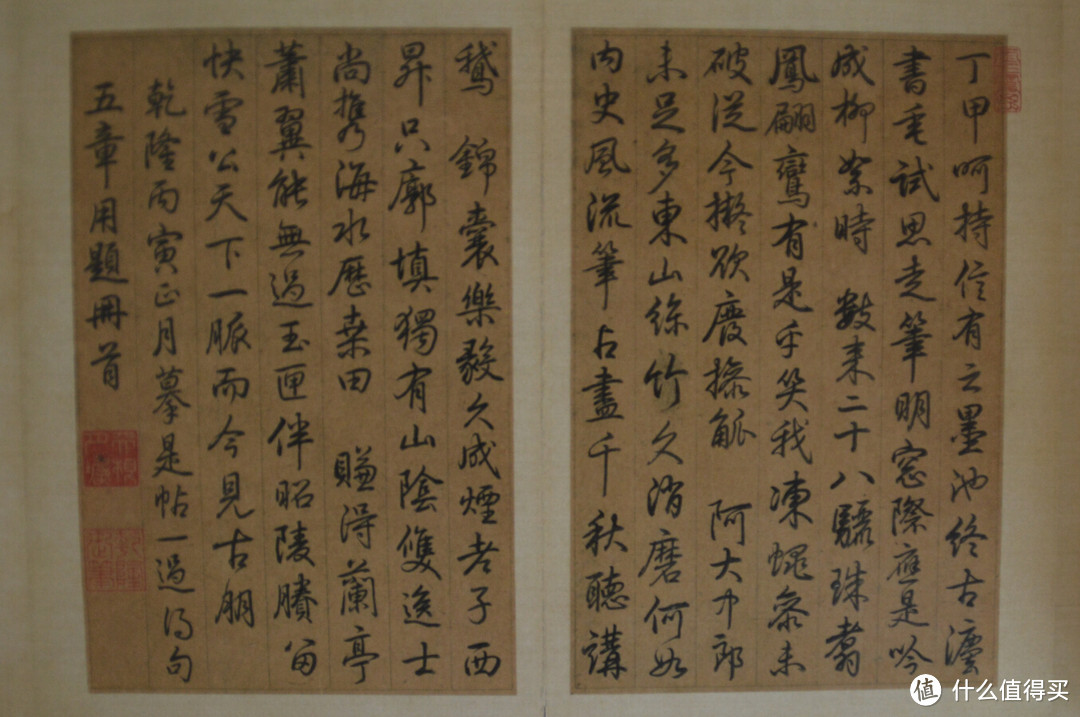 丁甲呵持信有之墨池終古
書毫試思走筆明窓際應是吟
成柳絮時 數来二十八驪珠翥
鳳翩鸞有是乎笑我凍蠅參未
破從今擬欲廢操觚 阿大中郎
未足多東山絲竹久消磨何如
内史風流筆占盡千秋聽講
鵝 錦囊樂毅久成煙老子西
昇只廓填獨有山陰雙逸士
尚攜海水歷桑田 賺得蘭亭
蕭翼能無過玉匣伴昭陵賸留
快雪公天下一脈而今見古朋
乾隆丙寅正月摹是帖一過得句
五章用題冊首
值 什么值得买